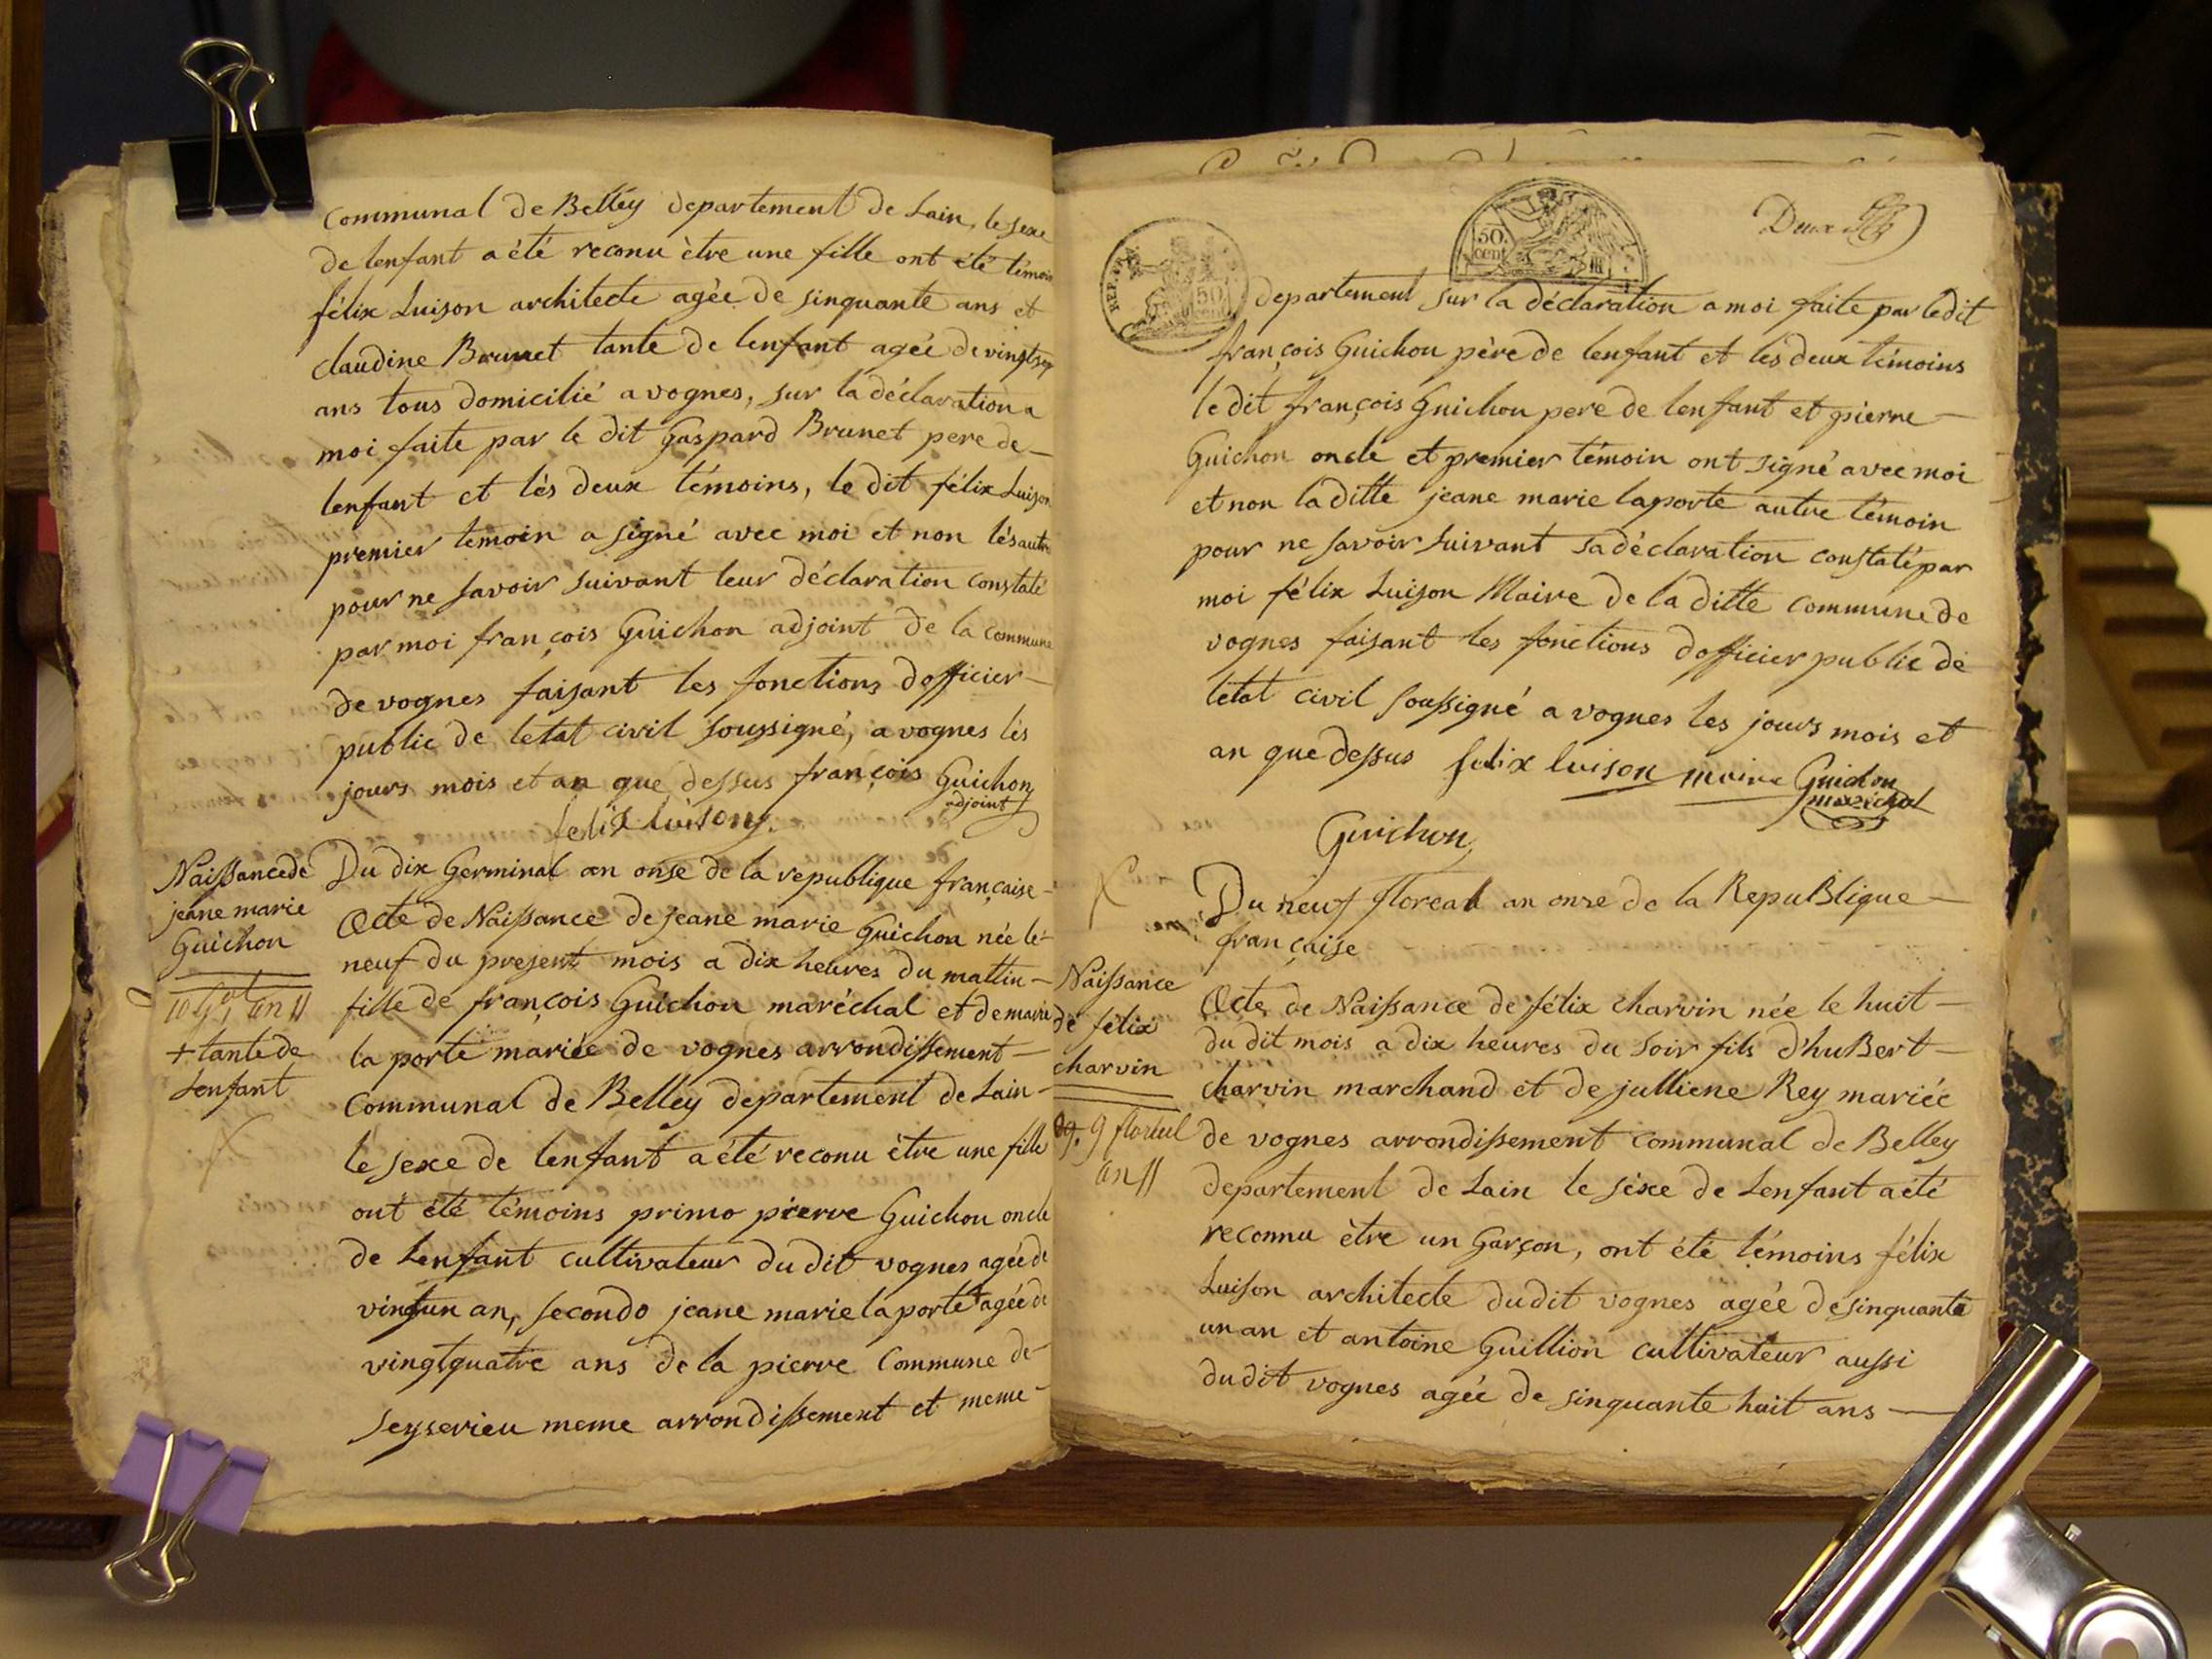 communal de Belley departement de Lain, le sexe
de lenfant a été reconu ètre une fille ont été témoin
félix Luison architecte agée de sinquante ans et
claudine Brunet tante de lenfant agée de vingtsep
ans tous domicilié a vognes, sur la déclaration a
moi faite par le dit Gaspard Brunet pere de
lenfant et lès deux témoins, le dit félix Luison
premier temoin a signé avec moi et non lès autre
pour ne savoir suivant leur déclaration constaté
par moi françois Guichon adjoint de la commune
de vognes faisant les fonctions dofficier
public de letat civil soussigné, a vognes lès
jours mois et an que dessus françois Guichon
adjoint
felix luison
Naissance de
jeane marie
Guichon
10 gal an 11
+ tante de
Lenfant
Du dix Germinal an onse de la republique française
Acte de Naissance de jeane marie Guichon née le
neuf du present mois a dix heures du mattin
fille de françois Guichon maréchal et de marie
la porte mariée de vognes arrondissement
communal de Belley departement de Lain
le sexe de lenfant a été reconu ètre une fille
ont été témoins primo pierre Guichon oncle
de Lenfant cultivateur du dit vognes agée de
vingtun an, secondo jeane marie la porte + agée de
vingtquatre ans de la pierre commune de
seyserieu meme arrondissement et meme
REP. FRA.
50
cent
50.
cent
Deux
departement sur la déclaration a moi faite par ledit
françois Guichon père de lenfant et lès deux témoins
le dit françois Guichon pere de lenfant et pierre
Guichon oncle et premier témoin ont signé avec moi
et non la ditte jeane marie laporte autre témoin
pour ne savoir suivant sa déclaration constaté par
moi félix Luison Maire de la ditte commune de
vognes faisant les fonctions dofficier public de
letat civil soussigné a vognes les jours mois et
an que dessus felix luison maire Guichon
marechal
Guichon
Du neuf floreal an onze de la RepuBlique
française
Naissance
de félix
charvin
9 floreal
an 11
Acte de Naissance de félix charvin née le huit
du dit mois a dix heures du soir fils d'huBert
charvin marchand et de julliene Rey mariée
de vognes arrondissement communal de Belley
departement de Lain le sèxe de Lenfant a été
reconnu ètre un Garçon, ont été témoins félix
Luison architecte dudit vognes agée de sinquante
un an et antoine Guillion cultivateur aussi
dudit vognes agée de sinquante huit ans